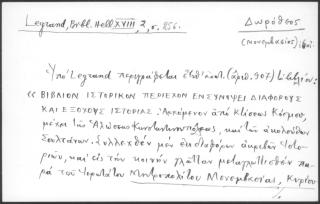 Legrand, Bibl. Hell. XVIII, 2, σ. 256.
Δωρόθεος
(Μονεμβασίας)
Ὑπὸ Legrand περιγράφεται (ἀριθ. 907)
"ΒΙΒΛΙΟΝ ΙΣΤΟΡΙΚΟΝ ΠΕΡΙΕΧΟΝ ΕΝ ΣΥΝΟΨΕΙ ΔΙΑΦΟΡΟΥΣ
ΚΑΙ ΕΞΟΧΟΥΣ ΙΣΤΟΡΙΑΣ. Ἀρχόμενον ἀπὸ κτίσεως Κόσμου,
μέχρι τῆς Ἁλώσεως Κωνσταντινουπόλεως, καὶ τῶν ἀκολούθων
Σουλτάνων. Συλλεχθὲν μὲν ἐκ διαφόρων ἀκριβῶν Ἱστο-
ριῶν, καὶ εἰς τὴν κοινὴν γλῶτταν μεταγλωττισθὲν πα-
ρὰ τοῦ Ἱερωτάτου Μητροπολίτου Μονεμβασίας, Κυρίου